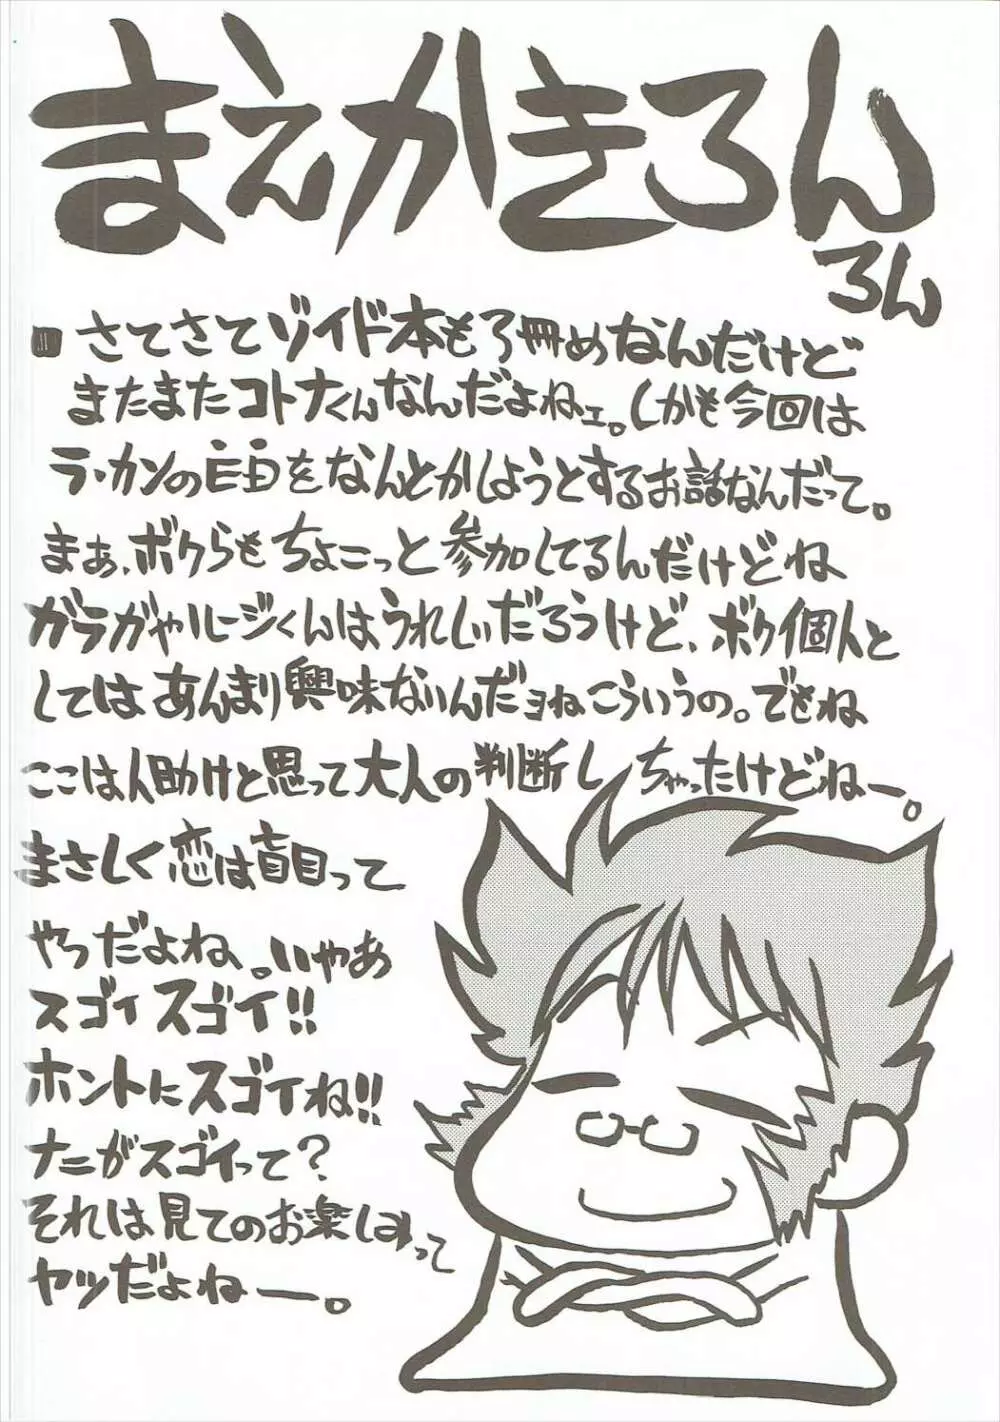 まえがきろん
ろん
さてさてゾイド本も3冊めなんだけど
またまたコトナくんなんだよねェ。しかも今回は
ラ・カンの目をなんとかしようとするお話なんだって。
まぁ、ボクらもちょこっと参加してるんだけどね
ガラガやルージくんはうれしいだろうけど、ボク個人と
してはあんまり興味ないんだョねこういうの。でもね
ここは人助けと思って大人の判断しちゃったけどねー。
まさしく恋は盲目って
やつだよね、。いやあ
スゴイスゴイ!!
ホントにスゴイね!!
ナニがスゴイって?
それは見てのお楽しみって
ヤツだよねー。